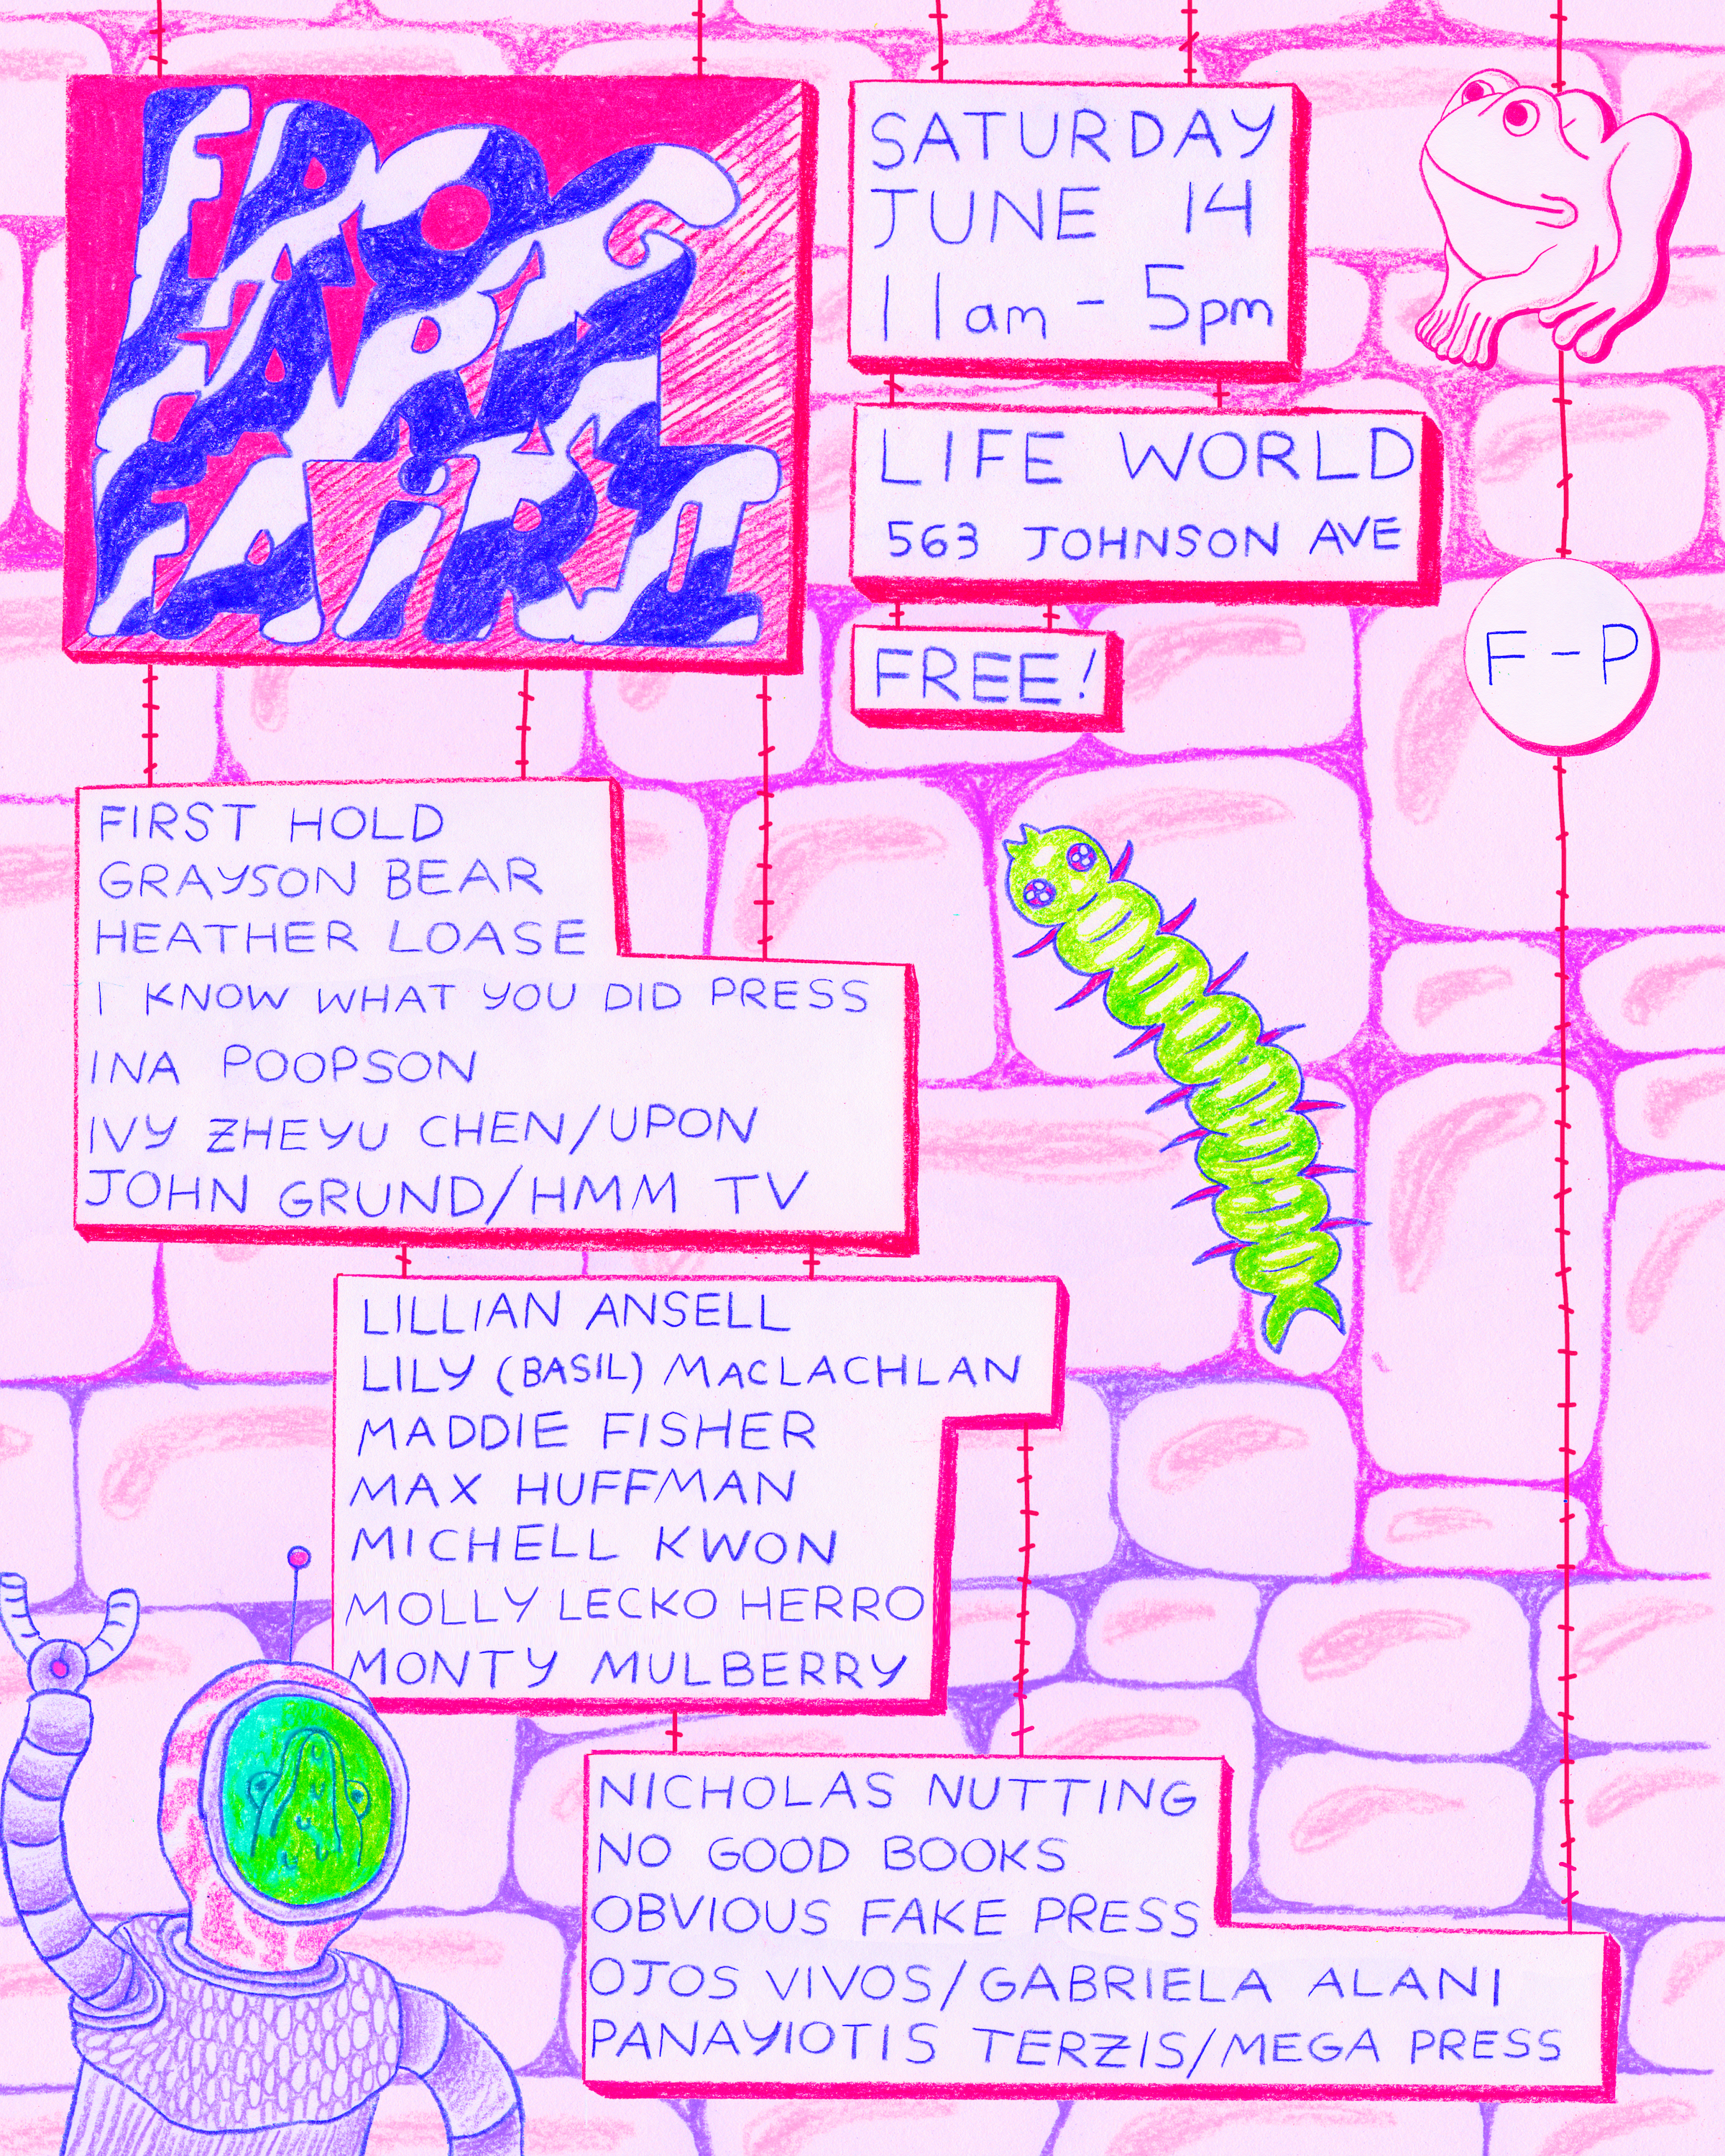 FROG
FARM
FAiR II
SATURDAY
JUNE 14
11am - 5pm
LIFE WORLD
563 JOHNSON AVE
FREE!
F-P
FIRST HOLD
GRAYSON BEAR
HEATHER LOASE
I KNOW WHAT YOU DID PRESS
INA POOPSON
IVY ZHEYU CHEN/UPON
JOHN GRUND/HMM TV
LILLIAN ANSELL
LILY (BASIL) MACLACHLAN
MADDIE FISHER
MAX HUFFMAN
MICHELL KWON
MOLLY LECKO HERRO
MONTY MULBERRY
NICHOLAS NUTTING
NO GOOD BOOKS
OBVIOUS FAKE PRESS
OJOS VIVOS/GABRIELA ALANI
PANAYIOTIS TERZIS/MEGA PRESS